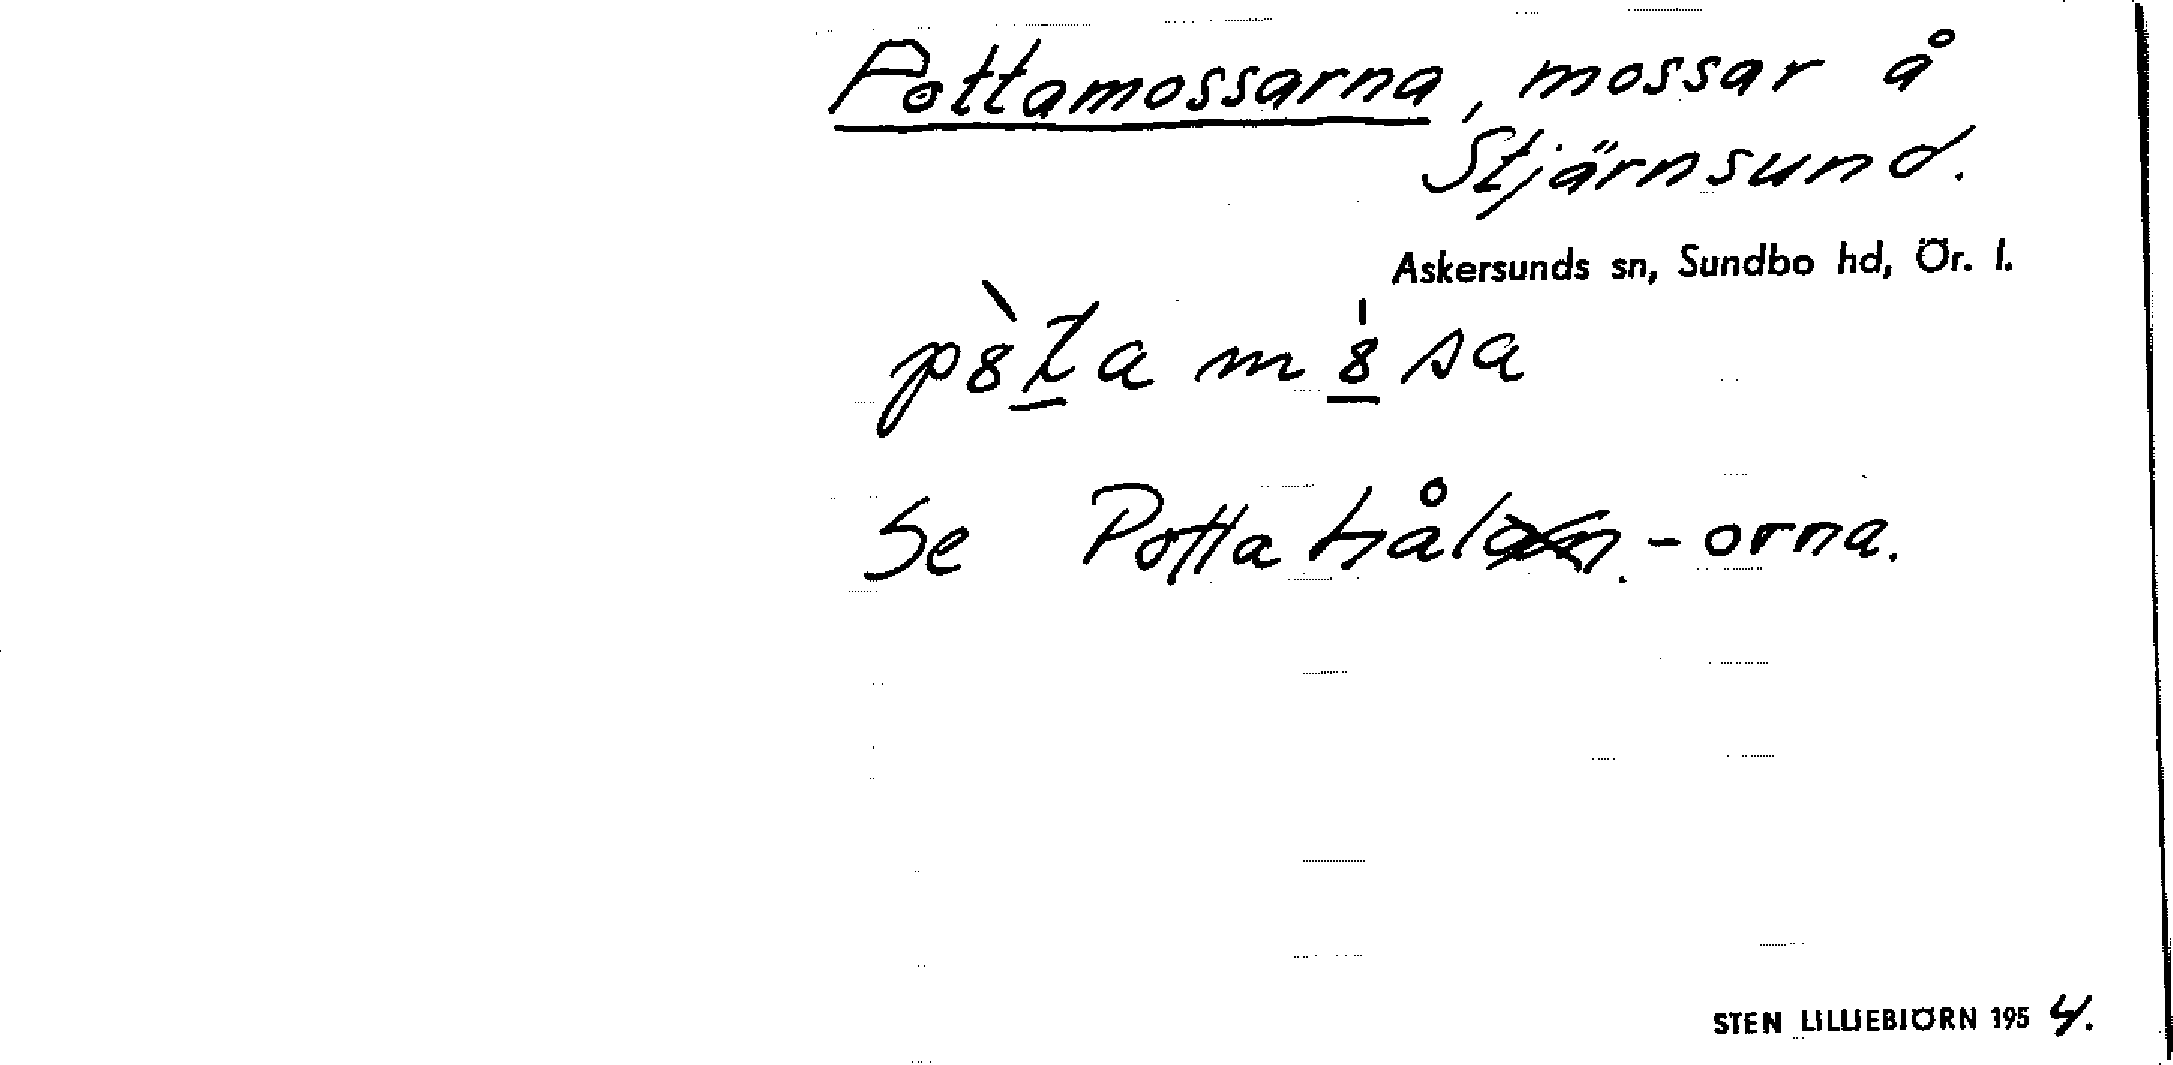 Pottamossarna, mossar å
Stjärnsund.
Askersunds sn, Sundbo hd, Ör. l.
Se Pottahål -orna.
STEN LILLIEBIÖRN 1954.